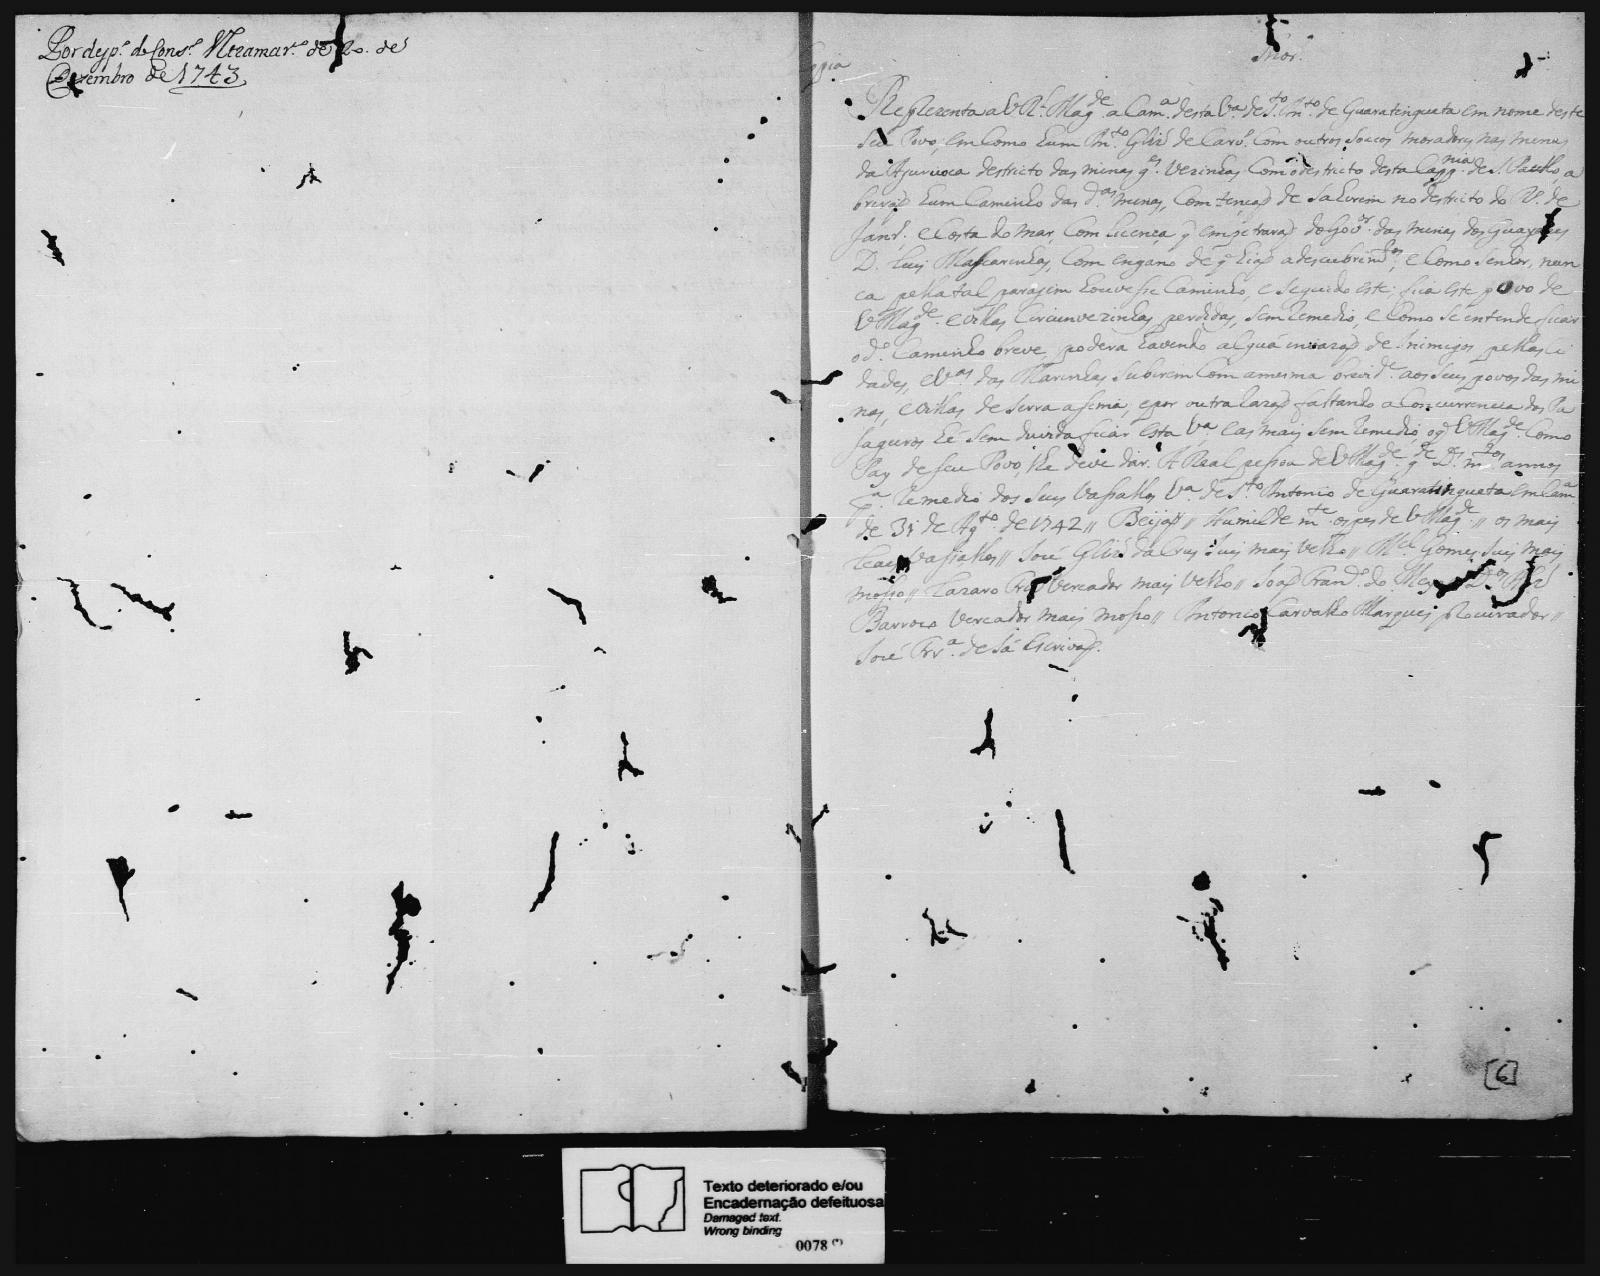 Por desp.º do Cons.º Ultramar.º de 20. de
Dezembro de 1743
Copia
Snõr.
Reprezenta a V R.l Mag.de a Cam.a desta V.a de S.to Ant.o de Guaratingueta em nome deste
seu Povo, em como hum Ant.o Glz de Carv.º com outros socios moradores nas minas
da Ajuruoca destricto das minas g.es vezinhas com o destricto desta Capp.nia de S. Paullo, a
brirão hum Caminho das d.as minas, com tenção de sahirem no destricto do R.º de
Janr.º e Costa do mar, com licença q empetrarão do Gov.or das minas dos Guayazes
D. Luis Mascarenhas, com engano de q hião a descubrim.tos, e como senhor, nun
ca pella tal paragem houvesse Caminho, e seguido este, fica este povo de
V Mag.de e villas circunvezinhas perdidas, sem remedio, e como se entende ficar
o d.º Caminho breve, podera havendo algũa invazão de Inimigos pellas Ci
dades, e V.as das Marinhas subirem com a mesma brevid.e aos seus povos das mi
nas, e villas de serra asima, e por outra razão faltando a concurrencia dos Pa
sageiros hé sem duvida ficar esta V.a e as mais sem remedio o q V Mag.de como
Pay de seu Povo, lhe deve dar. A Real pessoa de V Mag.de g.de D.s m.tos annos
p.a remedio dos seus vassallos V.a de S.to Antonio de Guaratingueta em Cam.a
de 31 de Ag.to de 1742 // Beijão // Humilde m.te os pes de V Mag.de // os mais
leaes vassallos // José Glz da Cruz Juis mais velho // M.el Gomes Juis mais
mosso // Lazaro Vereador mais velho // João Fran.co do
Barroca Vereador mais mosso // Antonio Carvalho Marques procurador //
José Frr.a de Sá Escrivão.
[6]
Texto deteriorado e/ou
Encadernação defeituosa
Damaged text.
Wrong binding
0078 (*)